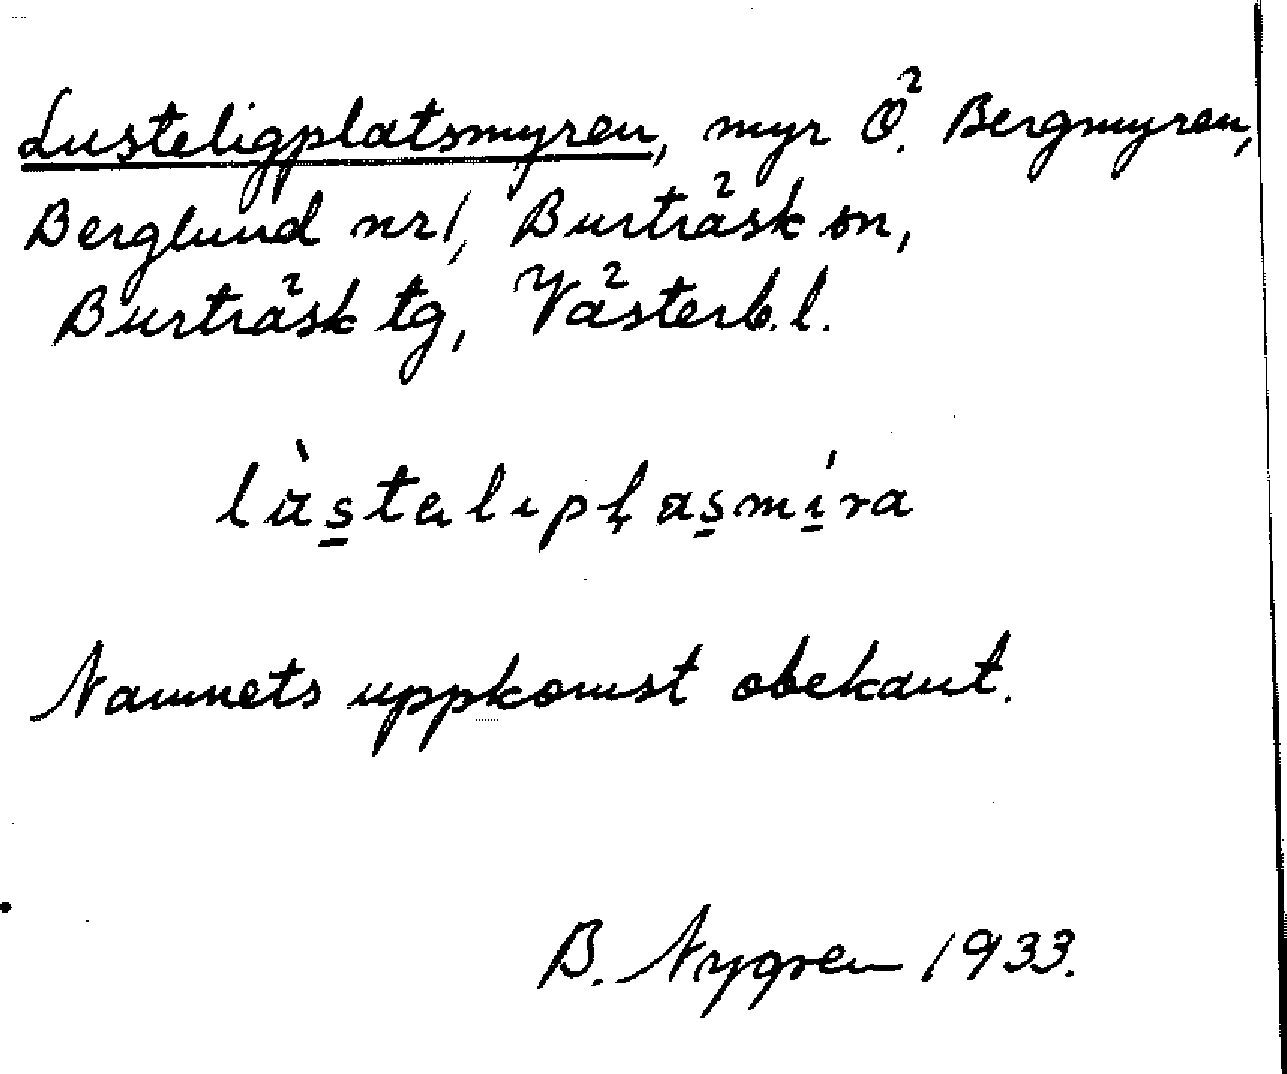 Lusteligplatsmyren, myr Ö. Bergmyren,
Berglund nr 1, Burträsk sn,
Burträsk tg, Västerb. l.
Namnets uppkomst obekant.
B. Nygren 1933.